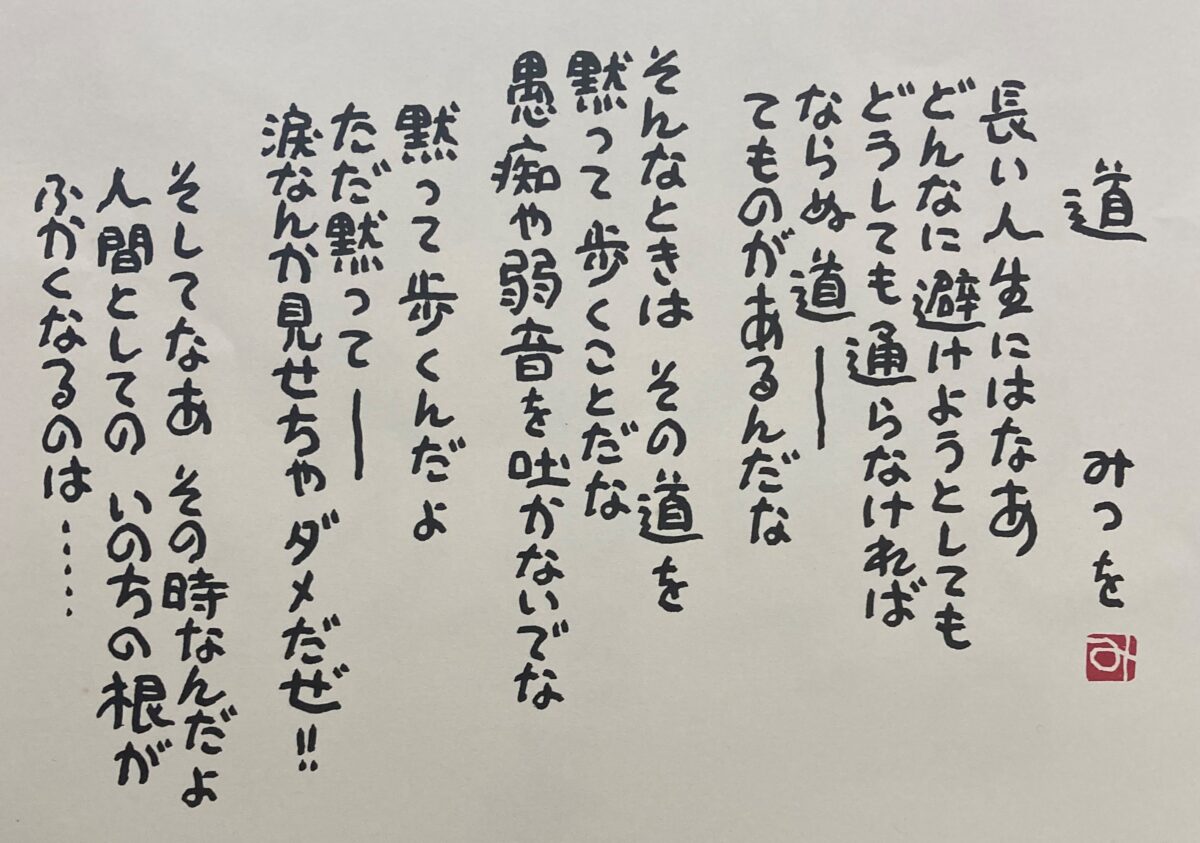 道　みつを
長い人生にはなあ
どんなに避けようとしても
どうしても通らなければ
ならぬ道―
てものがあるんだな
そんなときは その道を
黙って歩くことだな
愚痴や弱音を吐かないでな
黙って歩くんだよ
ただ黙って―
涙なんか見せちゃダメだぜ!!
そしてなあ その時なんだよ
人間としての いのちの根が
ふかくなるのは……
み